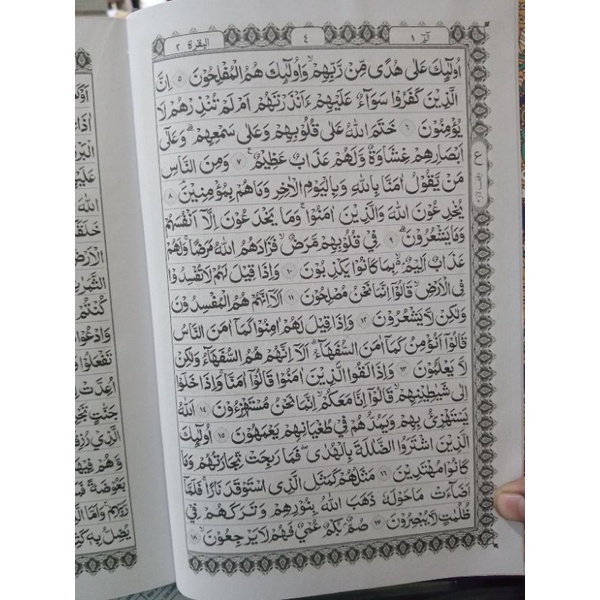 الٓمّٓ ١ ٤ البقرة ٢
اُولٰٓئِكَ عَلٰى هُدًى مِّنْ رَّبِّهِمْ ۙ وَاُولٰٓئِكَ هُمُ الْمُفْلِحُوْنَ ٥ اِنَّ
الَّذِيْنَ كَفَرُوْا سَوَآءٌ عَلَيْهِمْ ءَاَنْذَرْتَهُمْ اَمْ لَمْ تُنْذِرْهُمْ لَا
يُؤْمِنُوْنَ ٦ خَتَمَ اللّٰهُ عَلٰى قُلُوْبِهِمْ وَعَلٰى سَمْعِهِمْ ۗ وَعَلٰٓى
اَبْصَارِهِمْ غِشَاوَةٌ وَّلَهُمْ عَذَابٌ عَظِيْمٌ ٧ وَمِنَ النَّاسِ
مَنْ يَّقُوْلُ اٰمَنَّا بِاللّٰهِ وَبِالْيَوْمِ الْاٰخِرِ وَمَا هُمْ بِمُؤْمِنِيْنَ ٨
يُخٰدِعُوْنَ اللّٰهَ وَالَّذِيْنَ اٰمَنُوْا ۚ وَمَا يَخْدَعُوْنَ اِلَّآ اَنْفُسَهُمْ
وَمَا يَشْعُرُوْنَ ۗ ٩ فِيْ قُلُوْبِهِمْ مَّرَضٌ ۙ فَزَادَهُمُ اللّٰهُ مَرَضًا ۚ وَلَهُمْ
عَذَابٌ اَلِيْمٌ ۢ ۙ بِمَا كَانُوْا يَكْذِبُوْنَ ١٠ وَاِذَا قِيْلَ لَهُمْ لَا تُفْسِدُوْا
فِى الْاَرْضِ ۙ قَالُوْٓا اِنَّمَا نَحْنُ مُصْلِحُوْنَ ١١ اَلَآ اِنَّهُمْ هُمُ الْمُفْسِدُوْنَ
وَلٰكِنْ لَّا يَشْعُرُوْنَ ١٢ وَاِذَا قِيْلَ لَهُمْ اٰمِنُوْا كَمَآ اٰمَنَ النَّاسُ
قَالُوْٓا اَنُؤْمِنُ كَمَآ اٰمَنَ السُّفَهَآءُ ۗ اَلَآ اِنَّهُمْ هُمُ السُّفَهَآءُ وَلٰكِنْ
لَّا يَعْلَمُوْنَ ١٣ وَاِذَا لَقُوا الَّذِيْنَ اٰمَنُوْا قَالُوْٓا اٰمَنَّا ۚ وَاِذَا خَلَوْا
اِلٰى شَيٰطِيْنِهِمْ ۙ قَالُوْٓا اِنَّا مَعَكُمْ ۙ اِنَّمَا نَحْنُ مُسْتَهْزِءُوْنَ ١٤ اَللّٰهُ
يَسْتَهْزِئُ بِهِمْ وَيَمُدُّهُمْ فِيْ طُغْيَانِهِمْ يَعْمَهُوْنَ ١٥ اُولٰٓئِكَ
الَّذِيْنَ اشْتَرَوُا الضَّلٰلَةَ بِالْهُدٰى ۖ فَمَا رَبِحَتْ تِّجَارَتُهُمْ وَمَا
كَانُوْا مُهْتَدِيْنَ ١٦ مَثَلُهُمْ كَمَثَلِ الَّذِى اسْتَوْقَدَ نَارًا ۚ فَلَمَّآ
اَضَآءَتْ مَا حَوْلَهٗ ذَهَبَ اللّٰهُ بِنُوْرِهِمْ وَتَرَكَهُمْ فِيْ
ظُلُمٰتٍ لَّا يُبْصِرُوْنَ ١٧ صُمٌّۢ بُكْمٌ عُمْيٌ فَهُمْ لَا يَرْجِعُوْنَ ۙ ١٨